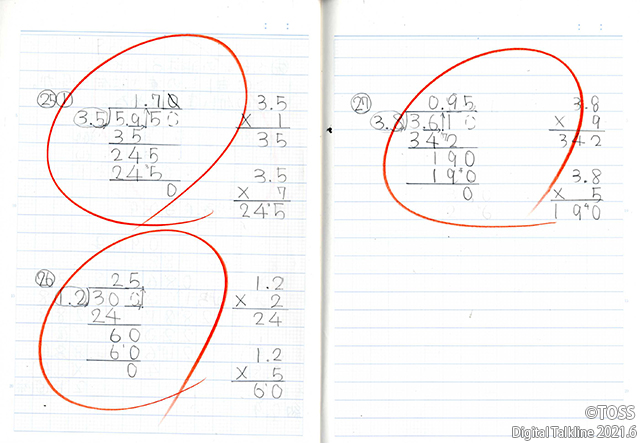 ㉕① 1.70
3.5)59.50
35
245
245
0
3.5
× 1
35
3.5
× 7
245
㉖ 25
1.2)300
24
60
60
0
1.2
× 2
24
1.2
× 5
60
㉗ 0.95
3.8)3.610
342
190
190
0
3.8
× 9
342
3.8
× 5
190
©TOSS
Digital Talkline 2021.6